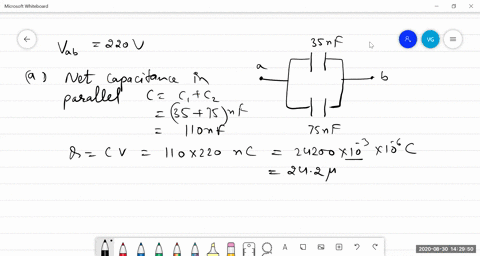 Microsoft Whiteboard
V_ab = 220 V
35nF
VG
a
b
(a) Net capacitance in
parallel C = C₁+C₂
= (35+75) nF
= 110nF
75nF
Q = CV = 110×220 nC = 24200 × 10⁻³ × 10⁻⁶ C
= 24.2 μ
2020-08-30 14:29:50